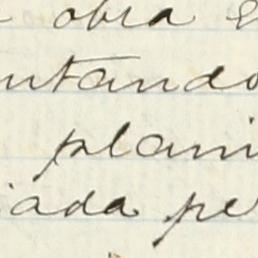 obra e
ntando
plani
iada pe